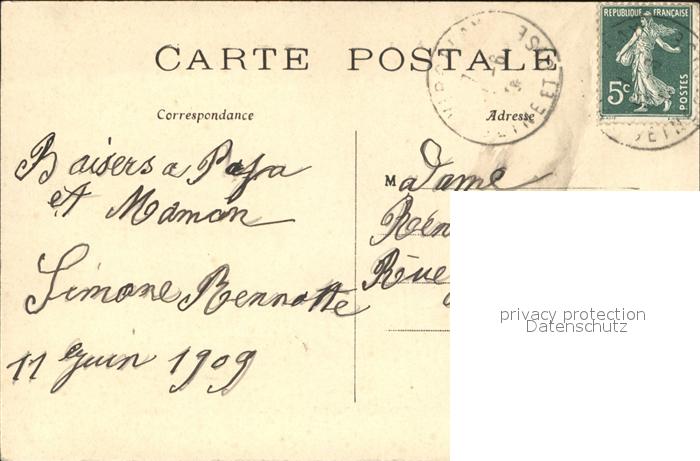 CARTE POSTALE
REPUBLIQUE FRANÇAISE
5c
POSTES
SEINE ET OISE
Correspondance
Adresse
Baisers a Papa
et Maman
Simone Rennotte
11 Juin 1909
Madame
Ren
Rue
privacy protection
Datenschutz